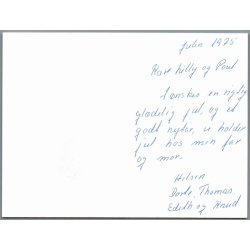 Julen 1975
Kære Lilly og Poul
I ønskes en rigtig
glædelig jul, og et
godt nytår, vi holder
jul hos min far
og mor.
Hilsen
Dorte, Thomas,
Edith og Knud